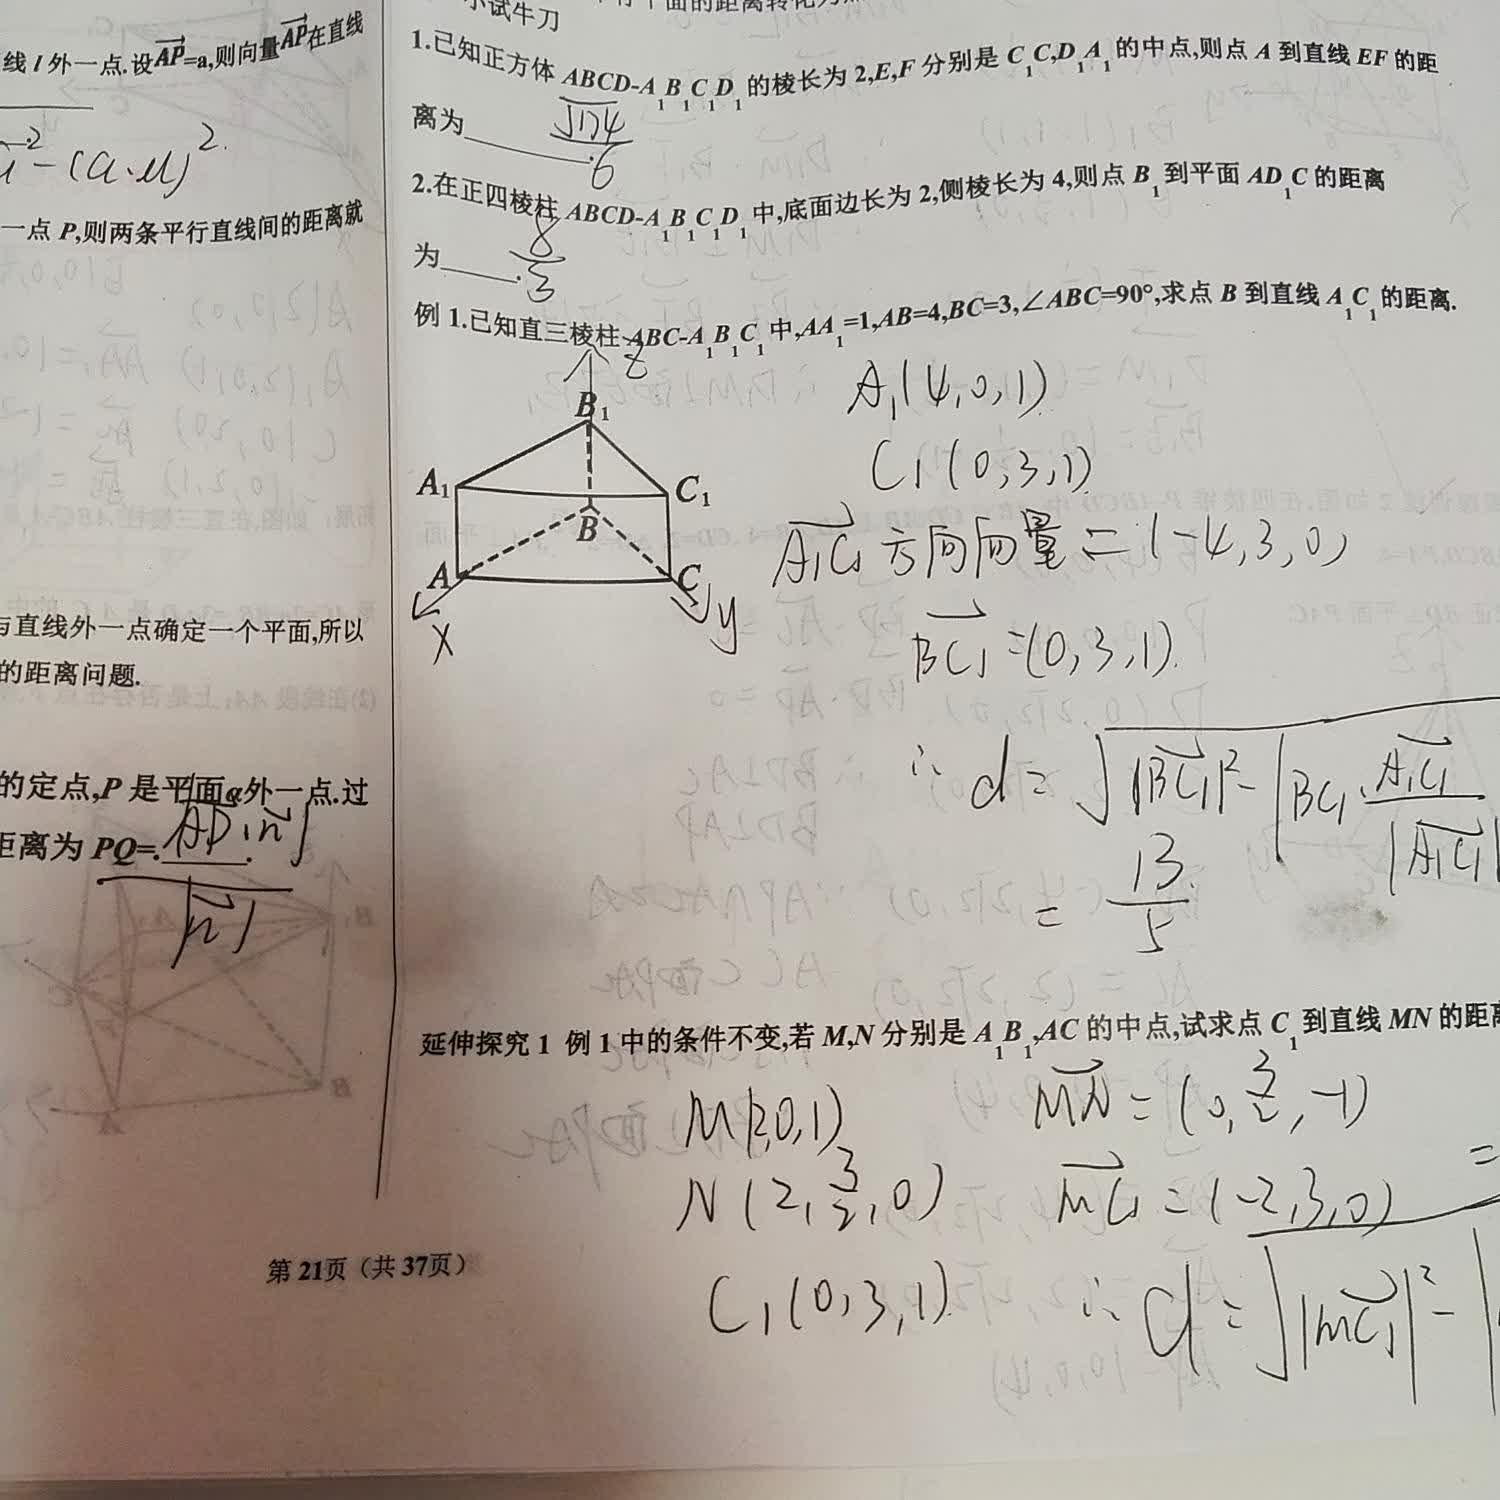 线 l 外一点.设AP=a,则向量AP在直线
²-(a·u)².
一点 P,则两条平行直线间的距离就
与直线外一点确定一个平面,所以
的距离问题.
的定点,P 是平面α外一点.过
距离为 PQ=. |AP·n| / |n|
第 21页（共 37页）
小试牛刀
1.已知正方体 ABCD-A₁B₁C₁D₁的棱长为 2,E,F 分别是 C₁C,D₁A₁的中点,则点 A 到直线 EF 的距
离为 √174/6 .
2.在正四棱柱 ABCD-A₁B₁C₁D₁中,底面边长为 2,侧棱长为 4,则点 B₁到平面 AD₁C 的距离
为 8/3 .
例 1.已知直三棱柱 ABC-A₁B₁C₁中,AA₁=1,AB=4,BC=3,∠ABC=90°,求点 B 到直线 A₁C₁的距离.
z
B₁
A₁
C₁
B
A
C
x
y
A₁(4,0,1)
C₁(0,3,1)
A₁C₁方向向量=(-4,3,0)
BC₁=(0,3,1).
∴d=√|BC₁|²-|BC₁·A₁C₁/|A₁C₁|
=13/5
延伸探究 1 例 1 中的条件不变,若 M,N 分别是 A₁B₁,AC 的中点,试求点 C₁到直线 MN 的距离
M(2,0,1) MN=(0,3/2,-1)
N(2,3/2,0) MC₁=(-2,3,0) =
C₁(0,3,1). ∴d=√|MC₁|²-|